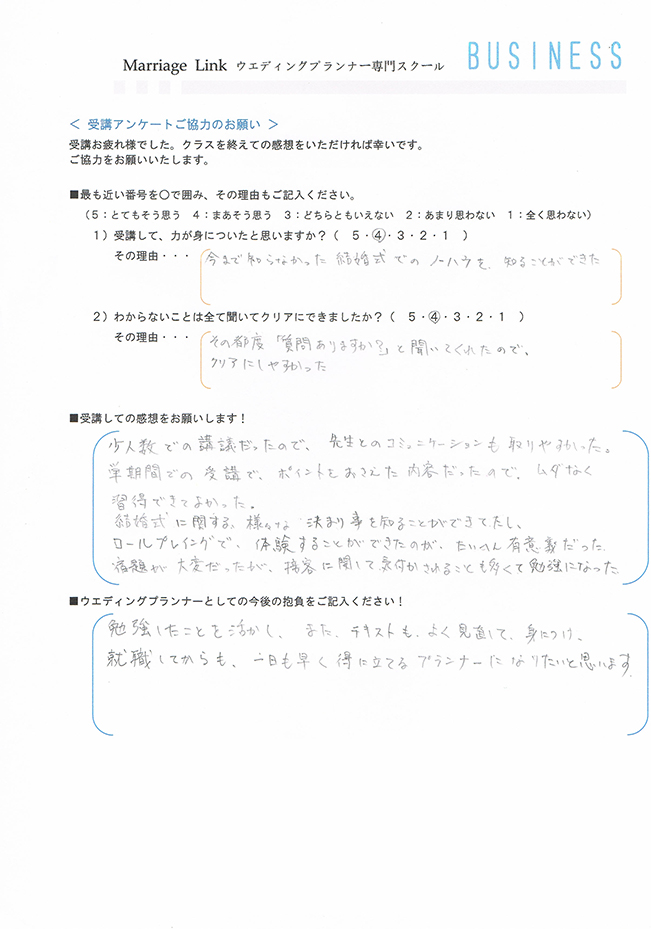 Marriage Link ウエディングプランナー専門スクール BUSINESS
＜ 受講アンケートご協力のお願い ＞
受講お疲れ様でした。クラスを終えての感想をいただければ幸いです。
ご協力をお願いいたします。
■最も近い番号を○で囲み、その理由もご記入ください。
（5：とてもそう思う　4：まあそう思う　3：どちらともいえない　2：あまり思わない　1：全く思わない）
1）受講して、力が身についたと思いますか？（　5・④・3・2・1　）
その理由・・・ 今まで知らなかった結婚式でのノーハウを、知ることができた
2）わからないことは全て聞いてクリアにできましたか？（　5・④・3・2・1　）
その理由・・・ その都度「質問ありますか？」と聞いてくれたので、
クリアにしやすかった
■受講しての感想をお願いします！
少人数での講議だったので、先生とのコミュニケーションも取りやすかった。
単期間での受講で、ポイントをおさえた内容だったので、ムダなく
習得できてよかった。
結婚式に関する、様々な決まり事を知ることができてたし、
ロールプレイングで、体験することができたのが、たいへん有意義だった。
宿題が大変だったが、接客に関して気付かされることも多くて勉強になった
■ウエディングプランナーとしての今後の抱負をご記入ください！
勉強したことを活かし、また、テキストも、よく見直して、身につけ、
就職してからも、一日も早く得に立てるプランナーになりたいと思います。